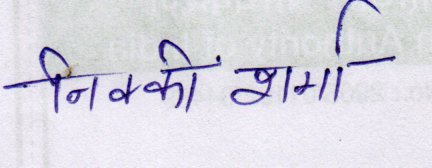 निक्की शर्मा